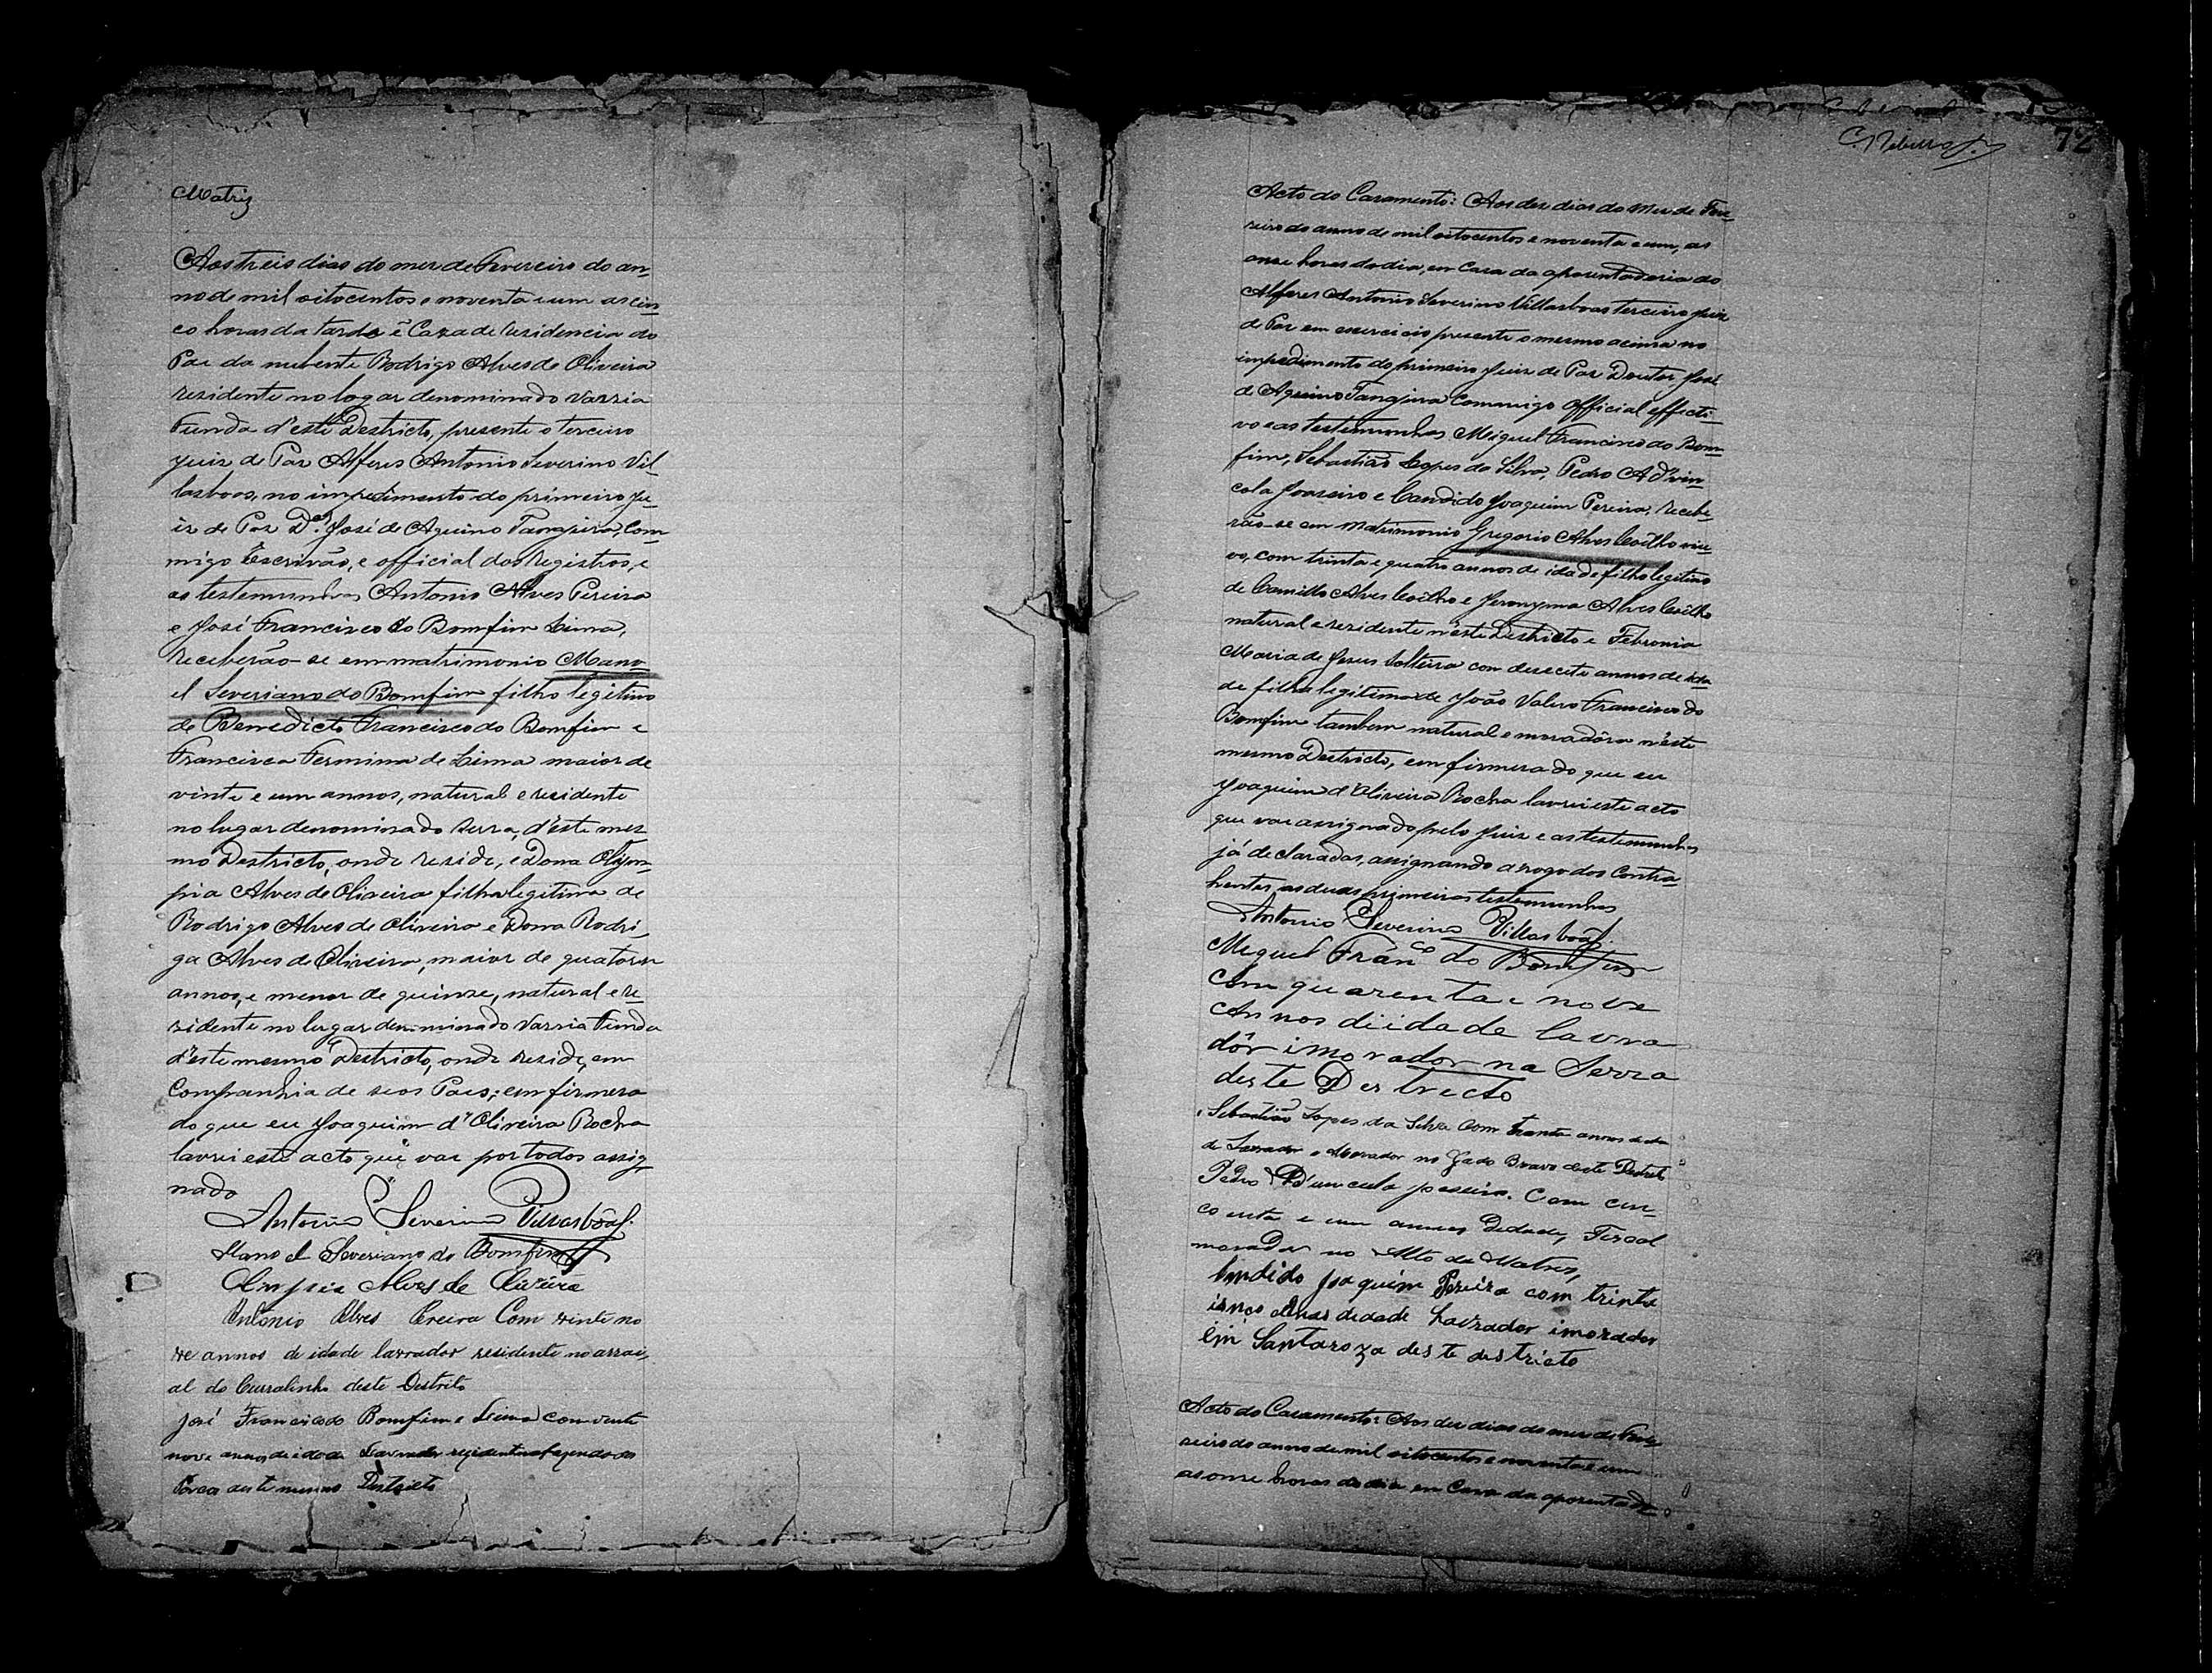 Matriz
Aos treis dias do mez de Fevereiro do an-
no de mil oitocentos e noventa e um as cin-
co horas da tarde ẽ Caza de residencia do
Pae da nubente Rodrigo Alves de Oliveira
residente no logar denominado Varzia
Funda d'este Destricto, presente o terceiro
Juiz de Paz Alferes Antonio Severino Vil-
lasboas, no impedimento do primeiro Ju-
iz de Paz D.or José de Aquino Tanajura, Com-
migo Escrivão, e official dos registros, e
as testemunhas Antonio Alves Pereira
e José Francisco do Bomfim Lima,
receberão-se em matrimonio Mano-
el Severiano do Bomfim filho legitimo
de Benedicto Francisco do Bomfim e
Francisca Fermina de Lima maior de
vinte e um annos, natural e residente
no lugar denominado Serra, d'este mes-
mo Destricto, onde reside, e Dona Olym-
pia Alves de Oliveira filha legitima de
Rodrigo Alves de Oliveira e Dona Rodri-
ga Alves de Oliveira, maior de quatorze
annos, e menor de quinze, natural e re-
zidente no lugar denominado Varzia Funda
d'este mesmo Destricto, onde reside, em
Companhia de seos Paes; em firmeza
do que eu Joaquim d'Oliveira Rocha
lavrei este acto que vae por todos assig-
nado
Antonio Severino Villasbôas.
Manoel Severiano do Bomfim
Olimpia Alves de Oliveira
Antonio Alves Pereira Com vinte no
ve annos de idade lavrador residente no arrai-
al do Curralinho deste Destrito
José Francisco do Bomfim e Lima com vente
nove annos de idade Lavrador rezidente na fazenda do
deste mesmo Destricto
72
Acto do Casamento: Aos dez dias do mez de Feve-
reiro do anno de mil oitocentos e noventa e um, as
onze horas do dia, em Casa da aposentadoria do
Alferes Antonio Severino Villasboas terceiro juiz
de Paz em exercicio presente o mesmo acima no
impedimento do primeiro Juiz de Paz Doutor José
de Aquino Tanajura Commigo Official effecti-
vo e as testemunhas Miguel Francisco do Bom-
fim, Sebastião Lopes da Silva, Pedro Ad'vin-
cola e Candido Joaquim Pereira, recebe-
rão-se em Matrimonio Gregorio Alves Coêlho viu-
vo, com trinta e quatro annos de idade filho legitimo
de Camillo Alves Coêlho e Jeronyma Alves Coêlho
natural e rezidente n'este Destricto e Febronia
Maria de Jesus Solteira com desecete annos de ida-
de filha legitima de João Valerio Francisco do
Bomfim tambem natural e moradôra n'este
mesmo Destricto, em firmeza do que eu
Joaquim d'Oliveira Rocha lavrei este acto
que vae assignado pelo Juiz e as testemunhas
já declaradas, assignando a rogo dos Contra-
hentes as duas primeiras testemunhas
Antonio Severino Villasboas.
Miguel Fran.co do Bomfim
Com quarenta e nove
Annos di idade lavra
dôr i morador na Serra
deste Destrecto
Sebastião Lopes da Silva Com trenta annos de ida
de Lavrador e Morador no Gado Bravo deste Destrito
Pedro Com cin-
coenta e um annos dedade, Fiscal
morador no Alto da Matris,
Candido Joaquim Pereira com trinta
icinço annos dedade Lavrador imorador
em Santaroza deste destricto
Acto do Casamento: Aos dez dias do mez de Feve-
reiro do anno de mil oitocentos e noventa e um
as onze horas do dia em Casa da aposentado-